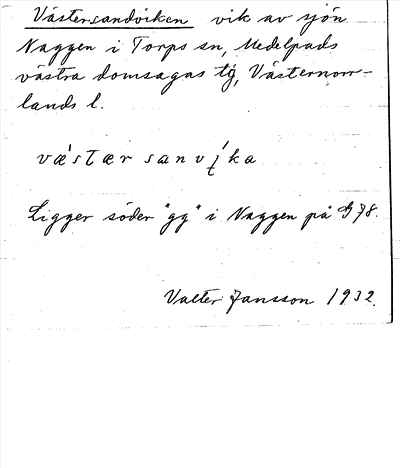 Västersandviken vik av sjön
Naggen i Torps sn, Medelpads
västra domsagas tg, Västernorr-
lands l.
væ'stær sanvika
Ligger söder "gg" i Naggen på G78.
Valter Jansson 1932.